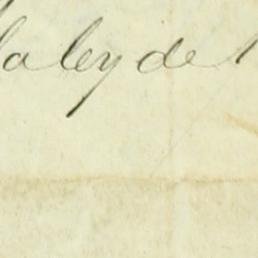 la ley de